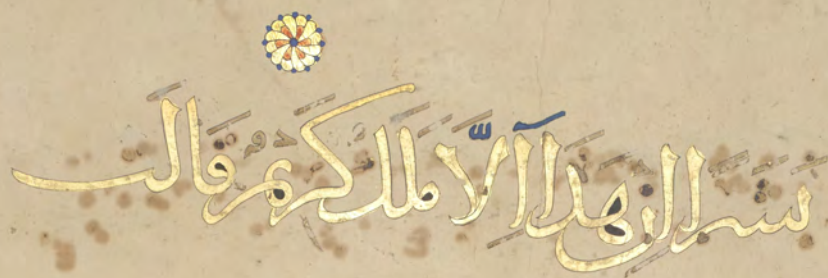 بشرا ان هذا الا ملك كريم قالت